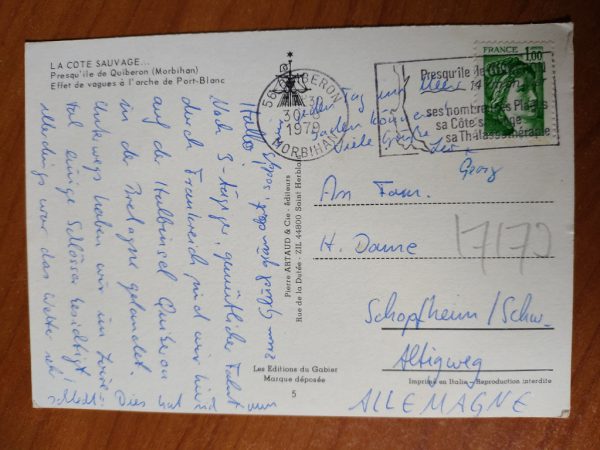 LA COTE SAUVAGE...
Presqu'ile de Quiberon (Morbihan)
Effet de vagues à l'arche de Port-Blanc
56 QUIBERON
1979
MORBIHAN
Presqu'île de
ses nombreuses Plages
sa Côte sauvage
sa Thalassothérapie
FRANCE
1,00
Hallo,
Nach 3-tägiger, gemütlicher Fahrt
durch Frankreich sind wir hier
auf der Halbinsel Quiberon
in der Bretagne gelandet.
Unterwegs haben wir im Loire-
tal einige Schlösser besichtigt!
allerdings war das Wetter sehr
schlecht. Dies hat
Tag
baden können!
Viele Grüße
Georg
Pierre ARTAUD & Cie - éditeurs
Rue de la Dutée - ZIL 44800 Saint Herblain
An Fam.
H. Damre
17172
Schopfheim/Schw.
Altigweg
ALLEMAGNE
Les Editions du Gabier
Marque déposée
5
Imprimé en Italie - Reproduction interdite